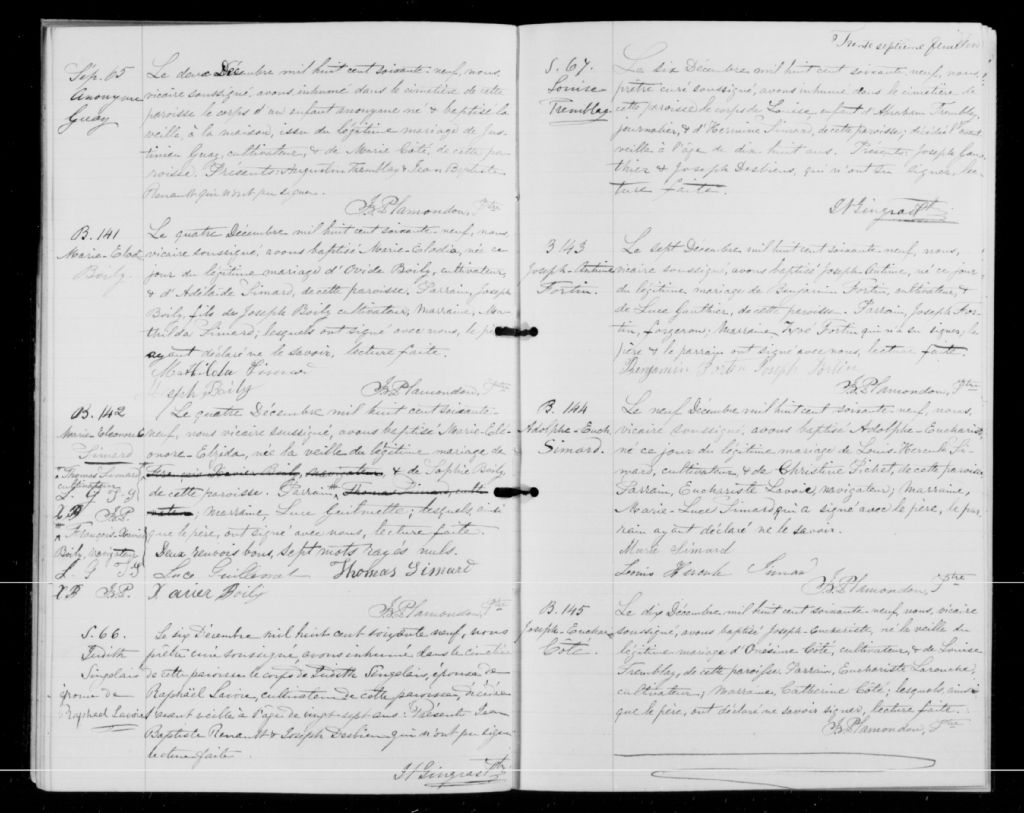 Sép. 65
Anonyme
Guay
Le deux Décembre mil huit cent soixante-neuf, nous,
vicaire soussigné, avons inhumé dans le cimetière de cette
paroisse le corps d'un enfant anonyme né & baptisé la
veille, à la maison, issu du légitime mariage de Jus-
tinien Guay, cultivateur, & de Marie Côté, de cette pa-
roisse. Présents Augustin Tremblay & Jean Baptiste
Renault qui n'ont pu signer.
J.B. Plamondon, Ptre
B. 141
Marie-Elod
Boily
Le quatre Décembre mil huit cent soixante-neuf, nous,
vicaire soussigné, avons baptisé Marie-Elodia, née ce
jour du légitime mariage d'Ovide Boily, cultivateur,
& d'Adélaide Simard, de cette paroisse. Parrain, Joseph
Boily, fils de Joseph Boily cultivateur, Marraine, Ma-
thilda Simard; lesquels ont signé avec nous, le pè
ayant déclaré ne le savoir, lecture faite.
Mathilda Simard
seph Boily
J.B. Plamondon, Ptre
B. 142
Marie-Eléonore E
Simard
Thomas Simard
cultivateur
L. G T-S
X B J.P.
François-Xavier
Boily, navigateur
L. G T-S
X B J.P.
Le quatre Décembre mil huit cent soixante-
neuf, nous vicaire soussigné, avons baptisé Marie-Elé-
onore-Elzida, née la veille du légitime mariage de
François Xavier Boily, navigateur, & de Sophie Boily
de cette paroisse. Parrain, Thomas Simard, culti-
vateur; marraine, Luce Guilmette; lesquels, ainsi
que le père, ont signé avec nous, lecture faite.
Deux renvois bons, sept mots rayés nuls.
Luce Guillemet Thomas Simard
Xavier Boily
J.B. Plamondon, Ptre
S. 66.
Judith
Singelais
épouse de
Raphael Lavoie
Le six Décembre mil huit cent soixante neuf, nous
prêtre curé soussigné avons inhumé dans le cimetière
de cette paroisse le corps de Judith Sengelais, épouse de
Raphaël Lavoie, cultivateur de cette paroisse, décédée
l'avant veille à l'age de vingt-sept ans. Présents Jean
Baptiste Renault & Joseph Desbiens qui n'ont pu signer
lecture faite.
J N Gingras Ptre
Trente septième feuillet
S. 67.
Louise
Tremblay
Le six Décembre mil huit cent soixante-neuf, nous,
prêtre curé soussigné, avons inhumé dans le cimetière de
cette paroisse le corps de Louise, enfant d'Abraham Tremblay,
journalier, & d'Hermine Simard, de cette paroisse; décédée l'avant
veille à l'âge de dix huit ans. Présents Joseph Gau-
thier & Joseph Desbiens, qui n'ont su signer, lec-
ture faite.
J N Gingras Ptr
B 143
Joseph-Antine
Fortin.
Le sept Décembre mil huit cent soixante-neuf, nous,
vicaire soussigné, avons baptisé Joseph Antine, né ce jour
du légitime mariage de Benjamin Fortin, cultivateur, &
de Luce Gauthier, de cette paroisse. Parrain, Joseph For-
tin, forgeron; Marraine, Fortin qui n'a su signer, le
père & le parrain ont signé avec nous, lecture faite.
Benjamin Fortin Joseph Fortin
J.B. Plamondon, Ptre
B. 144
Adolphe-Euch
Simard.
Le neuf Décembre mil huit cent soixante-neuf, nous,
vicaire soussigné, avons baptisé Adolphe-Eucharist
né ce jour du légitime mariage de Louis-Hercule Si-
mard, cultivateur, & de Christine Pichet, de cette paroisse
Parrain, Euchariste Lavoie, navigateur; Marraine,
Marie-Luce Simard qui a signé avec le père, le par-
rain ayant déclaré ne le savoir.
Marie Simard
Louis Hercule Simard
J.B. Plamondon, Ptre
B. 145
Joseph-Euchar
Côté.
Le dix Décembre mil huit cent soixante-neuf, nous, vicaire
soussigné, avons baptisé Joseph-Euchariste, né la veille du
légitime mariage d'Onésime Côté, cultivateur, & de Louise
Tremblay, de cette paroisse. Parrain, Euchariste Larouche,
cultivateur; Marraine, Catherine Côté; lesquels, ainsi
que le père, ont déclaré ne savoir signer, lecture faite.
J.B. Plamondon, Ptre